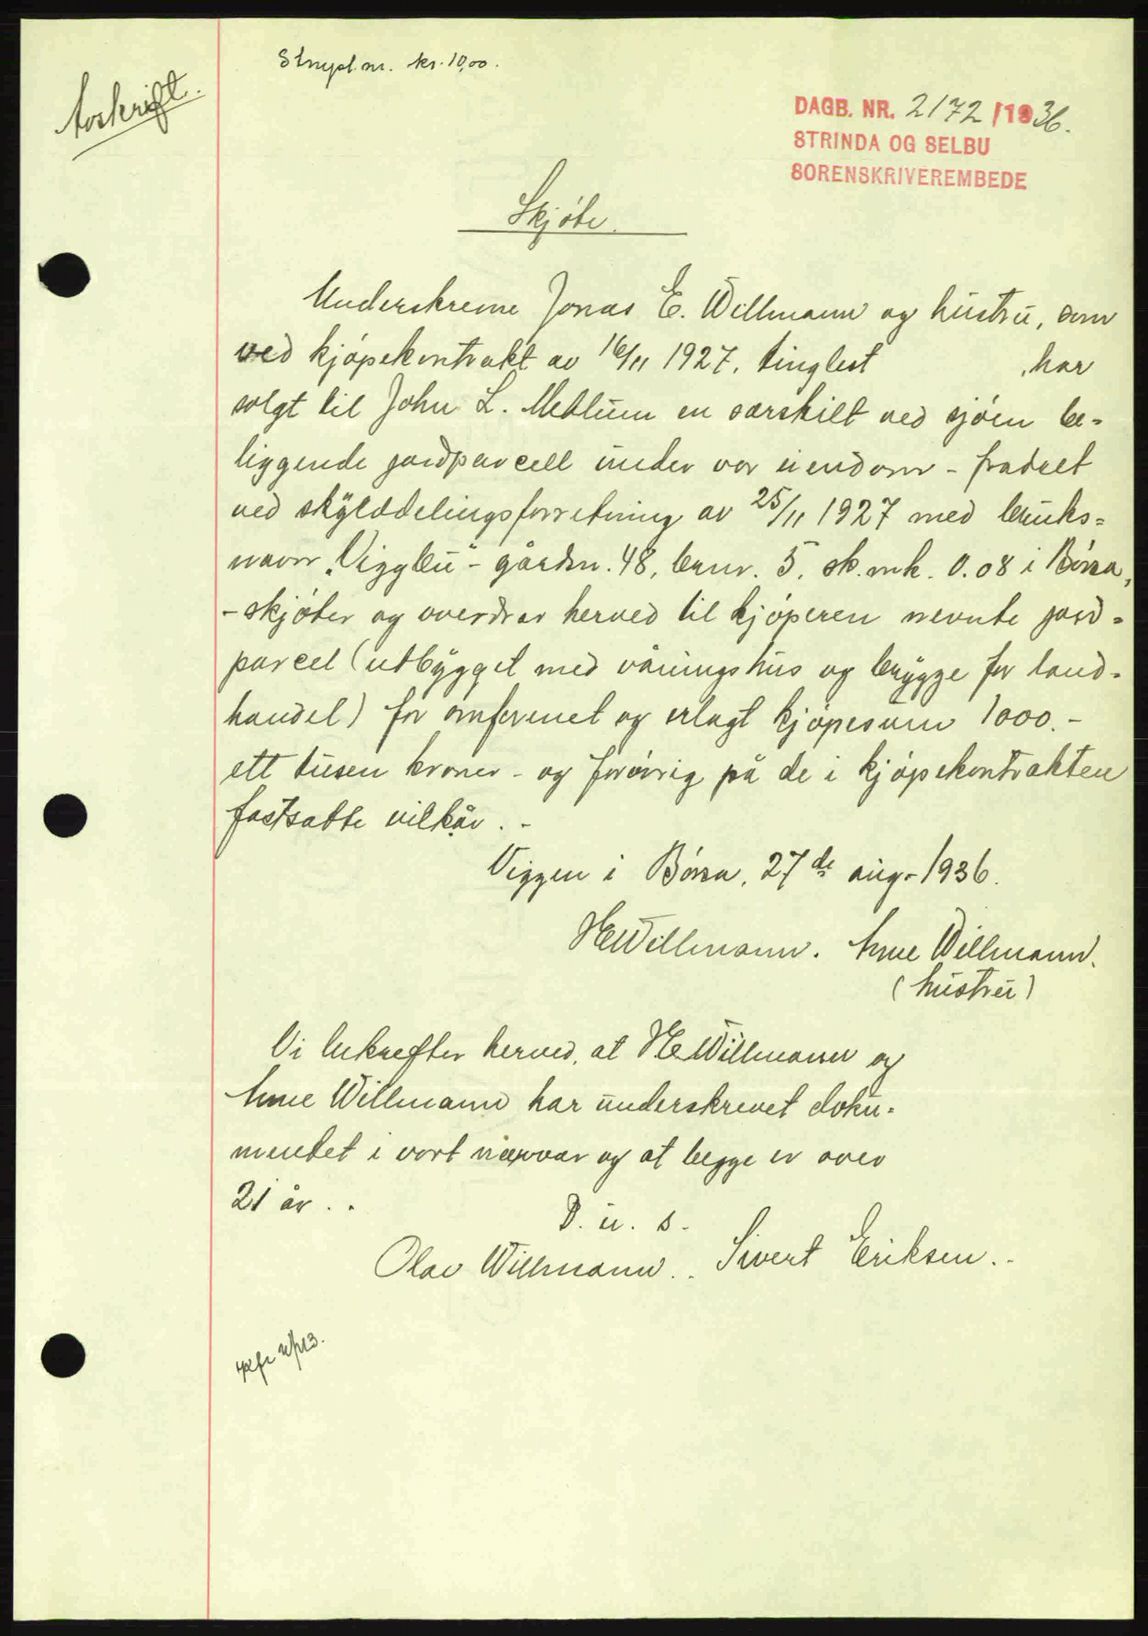 Avskrift.
Stempl.m. kr. 10,00.
DAGB. NR. 2172/1936.
STRINDA OG SELBU
SORENSKRIVEREMBEDE
Skjøte.
Underskrevne Jonas E. Willmann og hustru, som
ved kjøpekontrakt av 16/11 1927, tinglest , har
solgt til John L. Meblum en særskilt ved sjøen be-
liggende jordparcell under vor eiendom - fradelt
ved skylddelingsforretning av 25/11 1927 med bruks-
navn "Viggbu" - gårdsnr. 48, brnr. 5, sk. mk. 0.08 i Børsa,
- skjøter og overdrar herved til kjøperen nevnte jord-
parcel (utbygget med våningshus og brygge for land-
handel) for omforenet og erlagt kjøpesum 1000.-
ett tusen kroner - og forøvrig på de i kjøpekontrakten
fastsatte vilkår. -
Viggen i Børsa, 27de aug. 1936.
Willmann. Anne Willmann.
(hustru)
Vi bekrefter herved, at Willmann og
Anne Willmann har underskrevet doku-
mentet i vort nærvær og at begge er over
21 år . .
D. u. s.
Olav Willmann. . Sivert Eriksen. .